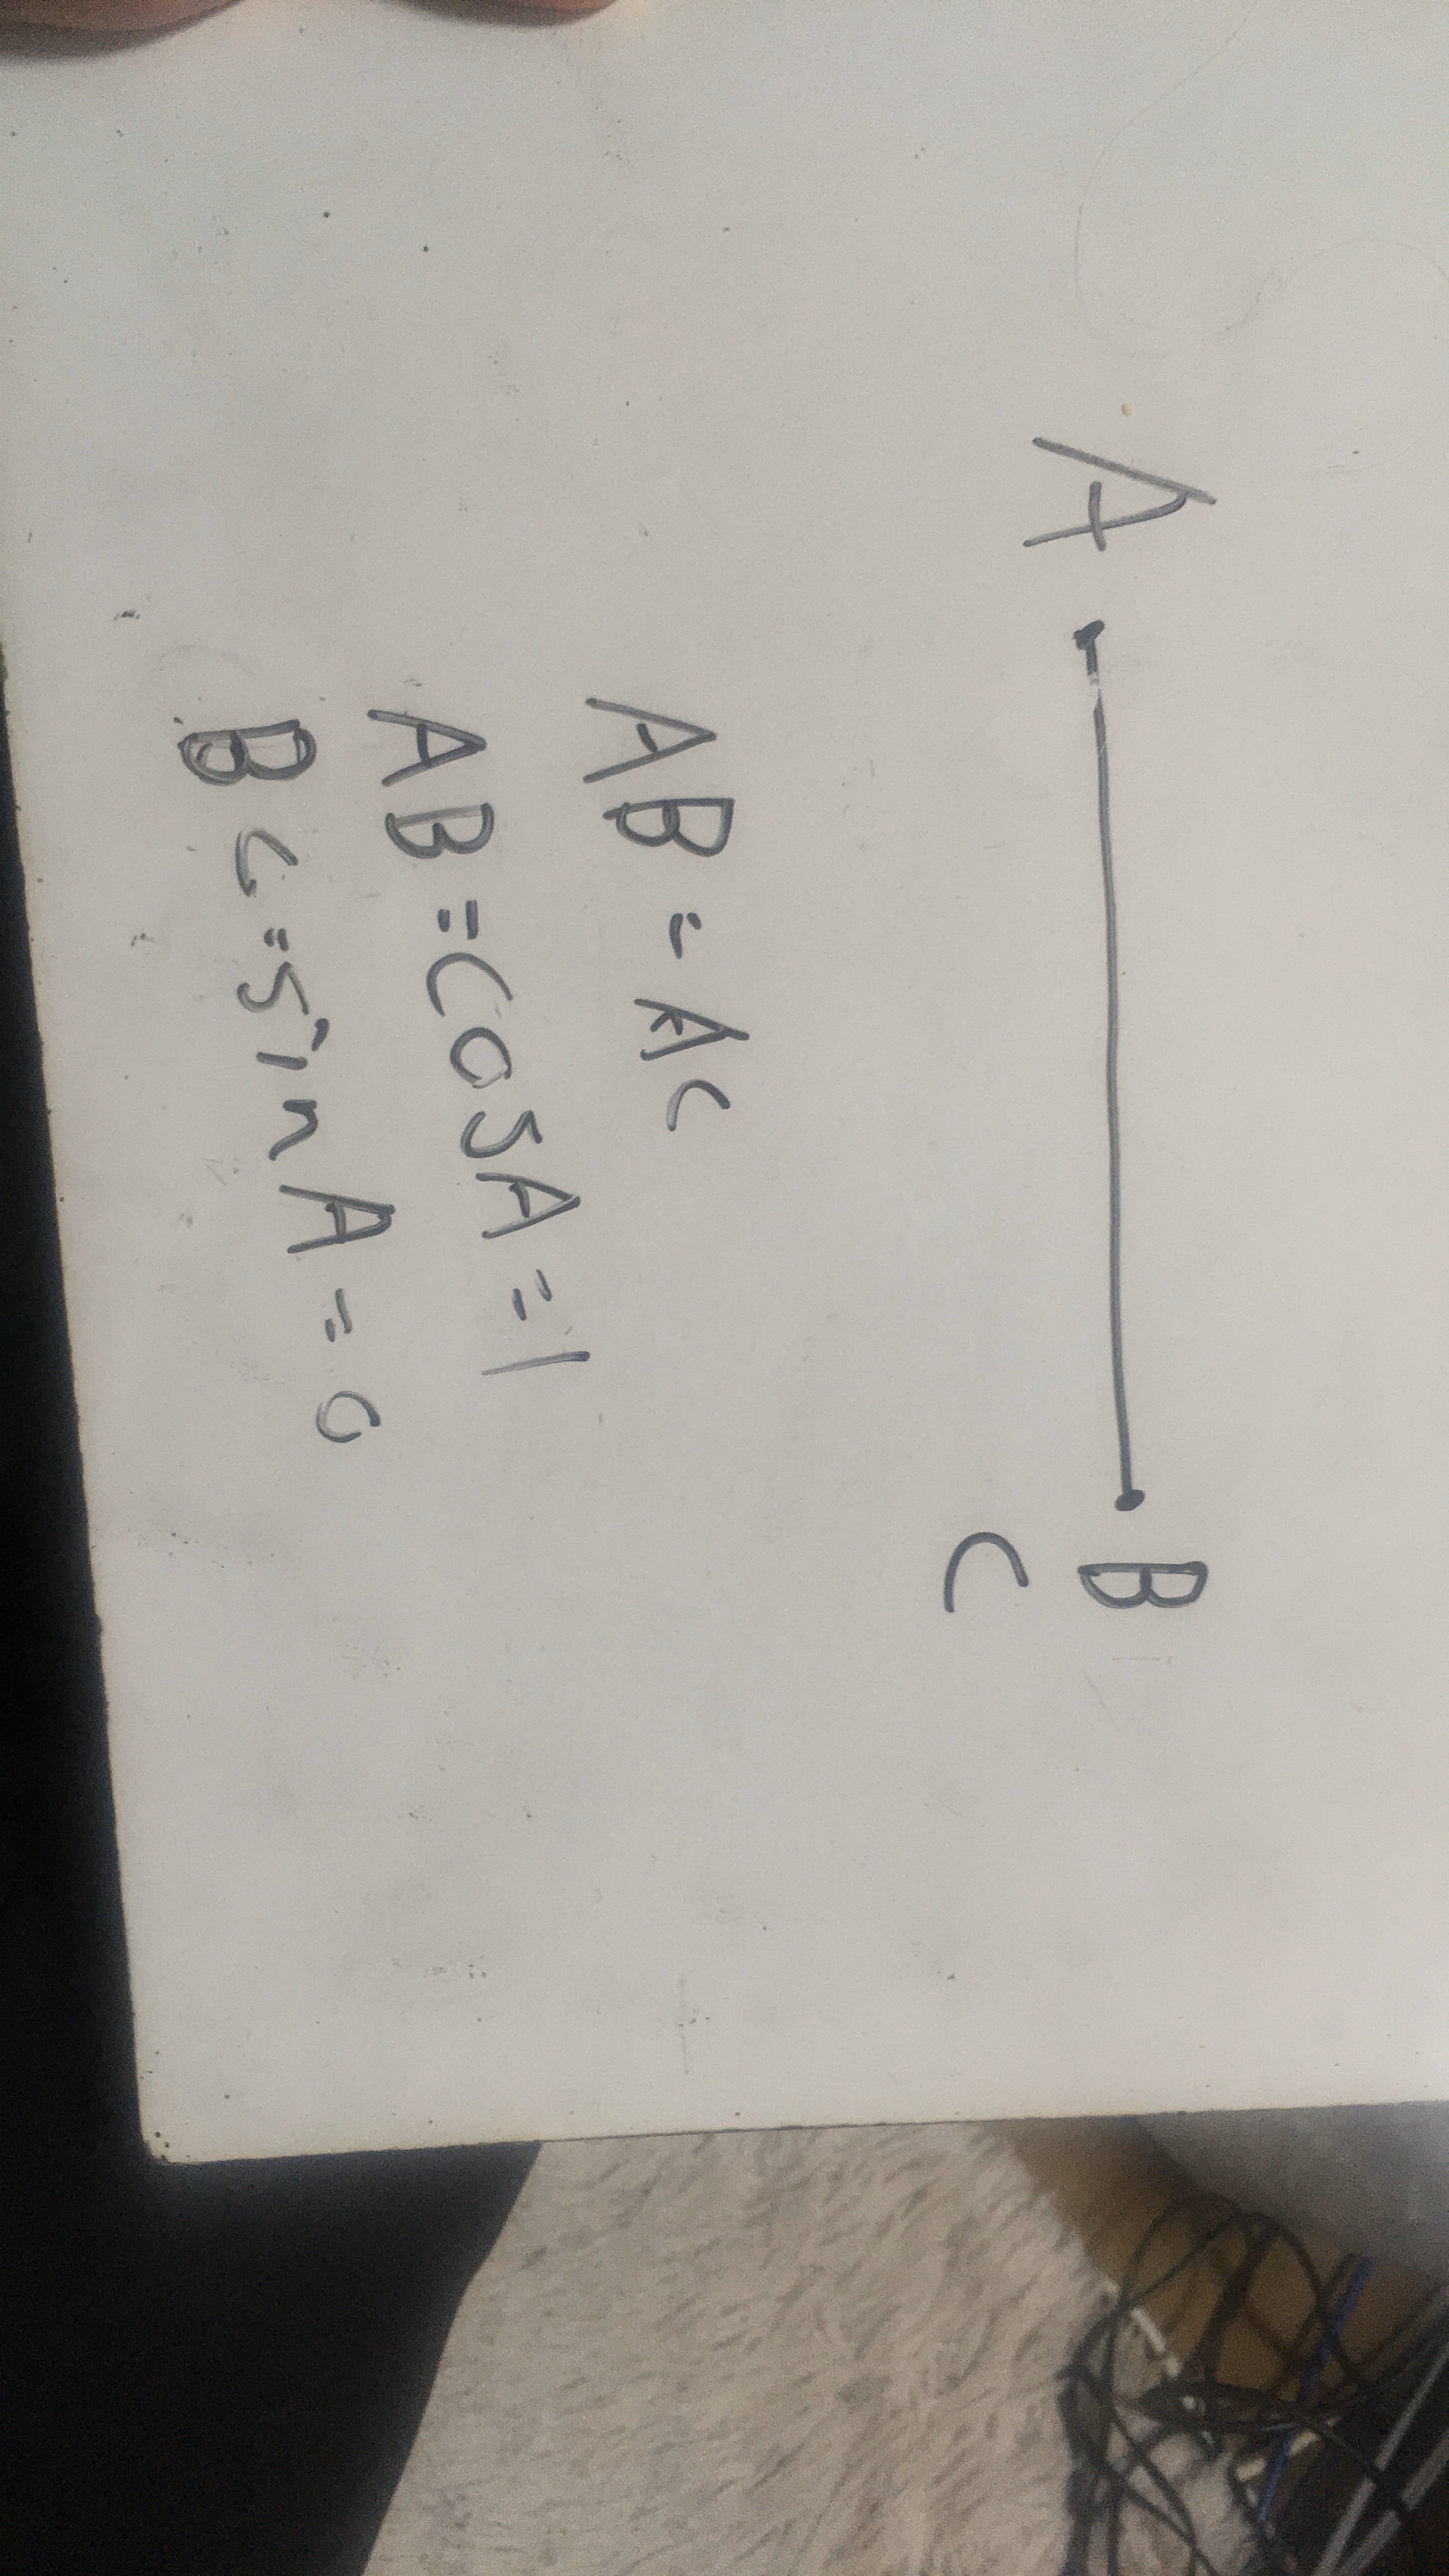 A B
C
AB = AC
AB = COSA = 1
BC = sin A = 0